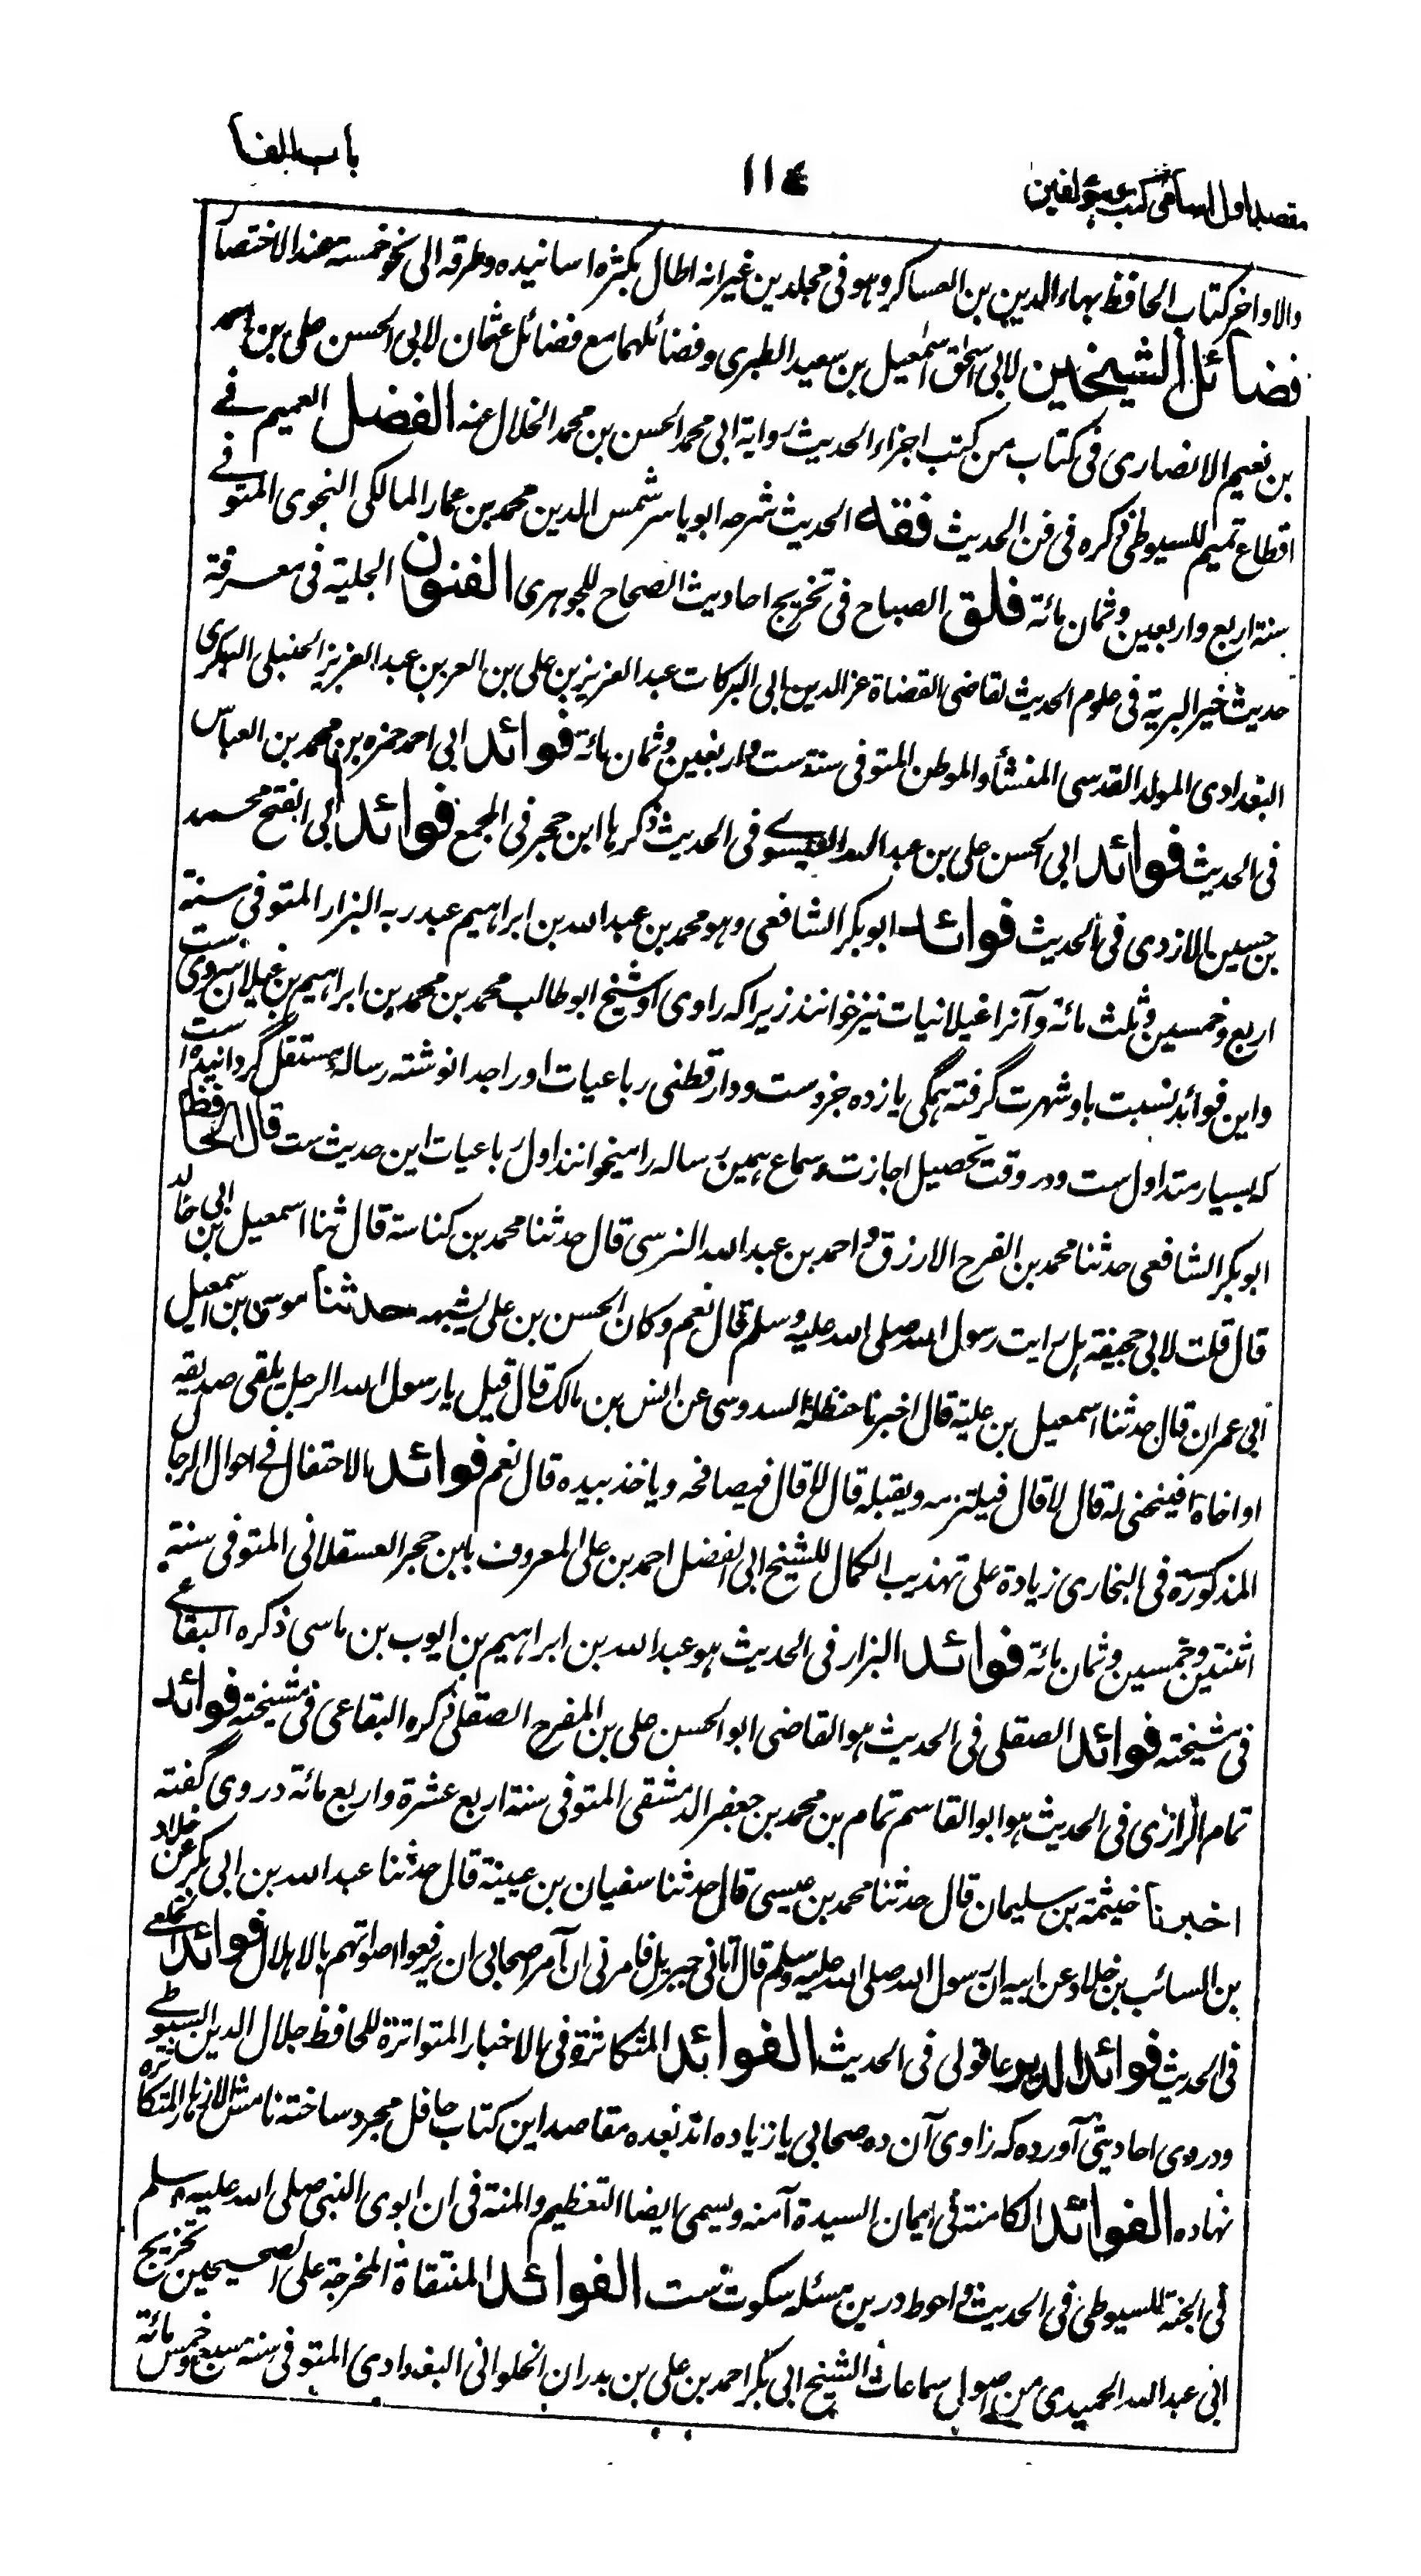 مقصد اول اسامی کتب و مؤلفین
۱۱۴
باب الفا
والاواخر کتاب الحافظ بهاء الدین بن العساکر وهو فی مجلدین غیرانه اطال بکثره اسانیده وطرقه الی نحو خمسه عند الاختصار
فضائل الشیخین لابی اسحٰق اسمٰعیل بن سعید الطبری وفضائلهما مع فضائل عثمان لابی الحسن علی بن احمد
بن نعیم الانصاری فی کتاب من کتب اجزاء الحدیث روایة ابی محمد الحسن بن محمد الخلال عنه الفضل العمیم فے
اقطاع تمیم للسیوطی ذکره فی فن الحدیث فقه الحدیث شرحه ابو یاسر شمس الدین محمد بن عمار المالکی النحوی المتوفے
سنة اربع واربعین وثمان مائة فلق الصباح فی تخریج احادیث الصحاح للجوهری الفنون الجلیة فی معرفة
حدیث خیر البریة فی علوم الحدیث لقاضی القضاة عز الدین ابی البرکات عبد العزیز بن علی بن العز بن عبد العزیز الحنبلی البکری
البغدادی المولد القدسی المنشأ والموطن المتوفی سنة ست واربعین وثمان مائة فوائد ابی احمد حمزه بن محمد بن العباس
فی الحدیث فوائد ابی الحسن علی بن عبد الله العیسوے فی الحدیث ذکرها ابن حجر فی المجمع فوائد ابی الفتح محمد
بن حسین الازدی فی الحدیث فوائد ابو بکر الشافعی وهو محمد بن عبد الله بن ابراهیم عبد ربه البزار المتوفی سنة
اربع وخمسین وثلث مائة وآنرا غیلانیات نیز خوانند زیرا که راوی او شیخ ابو طالب محمد بن محمد بن ابراهیم بن غیلان بزوی ست
واین فوائد نسبت باو شهرت گرفته همگی یازده جزوست ودار قطنی رباعیات اورا جدا نوشته رسالۂ مستقل گردانیده است
که بسیار متداول ست ودر وقت تحصیل اجازت وسماع همین رساله را میخوانند اول رباعیات این حدیث ست قال الحافظ
ابو بکر الشافعی حدثنا محمد بن الفرج الارزق و احمد بن عبد الله النرسی قال حدثنا محمد بن کناسة قال ثنا اسمعیل بن ابی خالد
قال قلت لابی جحیفة هل رایت رسول الله صلی الله علیه وسلم قال نعم وکان الحسن بن علی یشبهه حدثنا موسی بن اسمعیل
ابی عمران قال حدثنا اسمعیل بن علیة قال اخبرنا حنظلة السدوسی عن انس بن مالک قال قیل یا رسول الله الرجل یلقی صدیقه
او اخاه افینحنی له قال لا قال فیلتزمه ویقبله قال لا قال فیصافحه ویاخذ بیده قال نعم فوائد الاحتفال فے احوال الرجال
المذکورة فی البخاری زیادة علی تهذیب الکمال للشیخ ابی الفضل احمد بن علی المعروف بابن حجر العسقلانی المتوفی سنة
اثنتین وخمسین وثمان مائة فوائد البزار فی الحدیث هو عبد الله بن ابراهیم بن ایوب بن ماسی ذکره البقاعے
فی مشیخته فوائد الصقلی فی الحدیث هو القاضی ابو الحسن علی بن المفرح الصقلی ذکره البقاعی فی مشیخته فوائد
تمام الرازی فی الحدیث هو ابو القاسم تمام بن محمد بن جعفر الدمشقی المتوفی سنة اربع عشرة واربع مائة در وی گفته
اخبرنا خیثمة بن سلیمان قال حدثنا محمد بن عیسی قال حدثنا سفیان بن عیینة قال حدثنا عبد الله بن ابی بکر عن خلاد
بن السائب بن خلاد عن ابیه ان رسول الله صلی الله علیه وسلم قال اتانی جبریل فامرنی ان آمر اصحابی ان یرفعوا اصواتهم بالاهلال فوائد الخلعے
فی الحدیث فوائد الدیر عاقولی فی الحدیث الفوائد المتکاثرة فی الاخبار المتواترة للحافظ جلال الدین السیوطے
ودروی احادیثی آورده که راوی آن ده صحابی یا زیاده اند بعده مقاصد این کتاب حافل مجرد ساخته نامش الازهار المتکاثره
نهاده الفوائد الکامنة فی ایمان السیدة آمنه ویسمی ایضا التعظیم والمنة فی ان ابوی النبی صلی الله علیه وسلم
فی الجنة للسیوطی فی الحدیث و احوط درین مسئله سکوت ست الفوائد المنتقاة المخرجة علی الصحیحین تخریج
ابی عبد الله الحمیدی من اصول سماعات الشیخ ابی بکر احمد بن علی بن بدران الحلوانی البغدادی المتوفی سنة سبع وخمس مائة